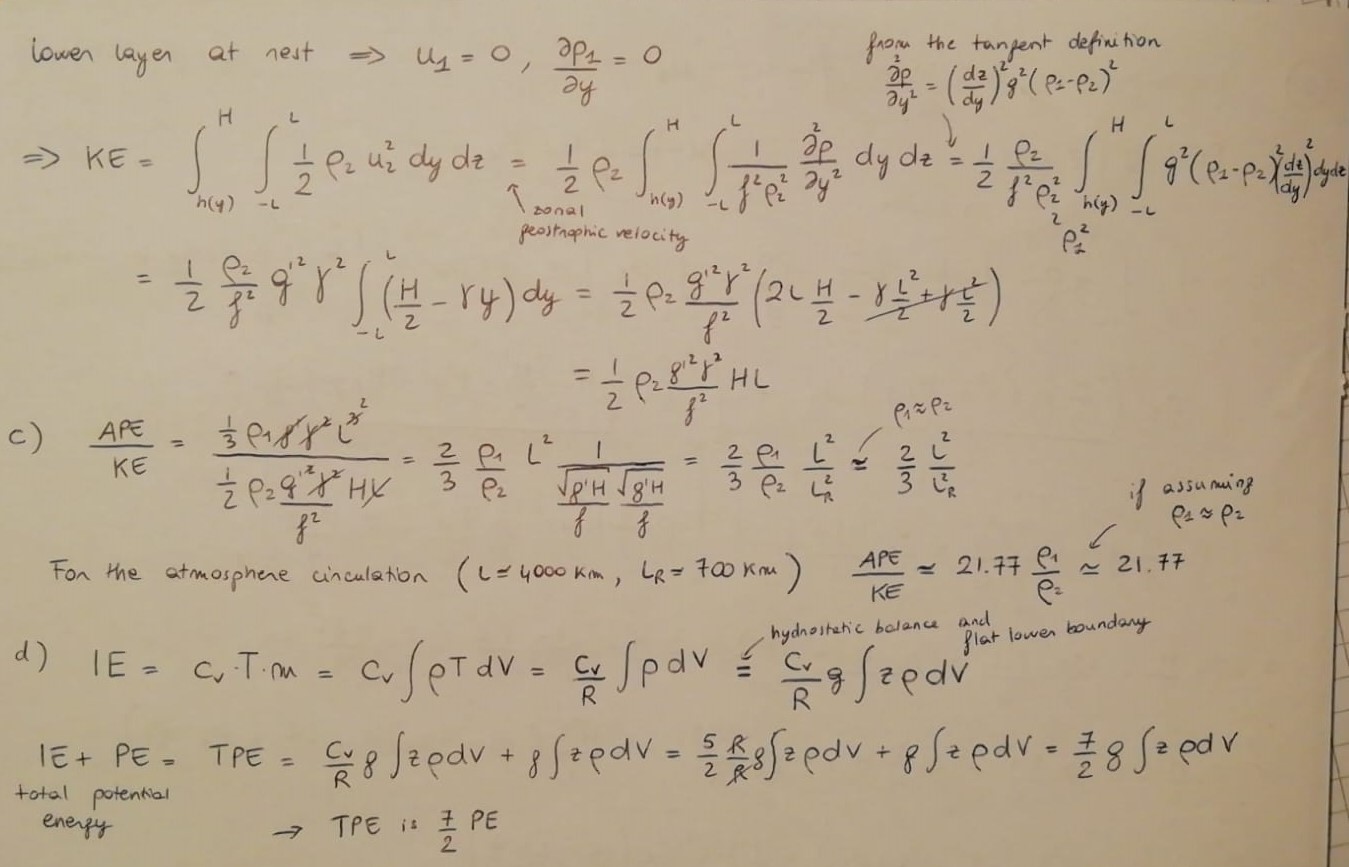 lower layer at rest ⇒ u₁ = 0 , ∂p₁/∂y = 0
from the tangent definition
∂²p/∂y² = (dz/dy)² g² (ρ₁-ρ₂)²
⇒ KE = ∫_{h(y)}^{H} ∫_{-L}^{L} 1/2 ρ₂ u₂² dy dz = 1/2 ρ₂ ∫_{h(y)}^{H} ∫_{-L}^{L} 1/(f²ρ₂²) ∂²p/∂y² dy dz = 1/2 ρ₂/(f²ρ₂²) ∫_{h(y)}^{H} ∫_{-L}^{L} g²(ρ₁-ρ₂)² (dz/dy)² dy dz
zonal
geostrophic velocity
ρ₁²
= 1/2 ρ₂/f² g'² γ² ∫_{-L}^{L} (H/2 - γy) dy = 1/2 ρ₂ g'²γ²/f² (2L H/2 - γ L²/2 + γ L²/2)
= 1/2 ρ₂ g'²γ²/f² HL
ρ₁≈ρ₂
c) APE/KE = (1/3 ρ₁ g' γ² L³)/(1/2 ρ₂ g'²γ²/f² HL) = 2/3 ρ₁/ρ₂ L² 1/(√(g'H)/f √(g'H)/f) = 2/3 ρ₁/ρ₂ L²/L_R² ≃ 2/3 L²/L_R²
if assuming
ρ₁ ≈ ρ₂
For the atmosphere circulation (L ≃ 4000 km, L_R ≃ 700 km) APE/KE ≃ 21.77 ρ₁/ρ₂ ≃ 21.77
hydrostatic balance and
flat lower boundary
d) IE = c_v·T·m = c_v ∫ρT dV = c_v/R ∫p dV = c_v/R g ∫zρdV
IE + PE = TPE = c_v/R g ∫zρdV + g∫zρdV = 5/2 R/R g∫zρdV + g∫zρdV = 7/2 g ∫zρdV
total potential
energy
→ TPE is 7/2 PE